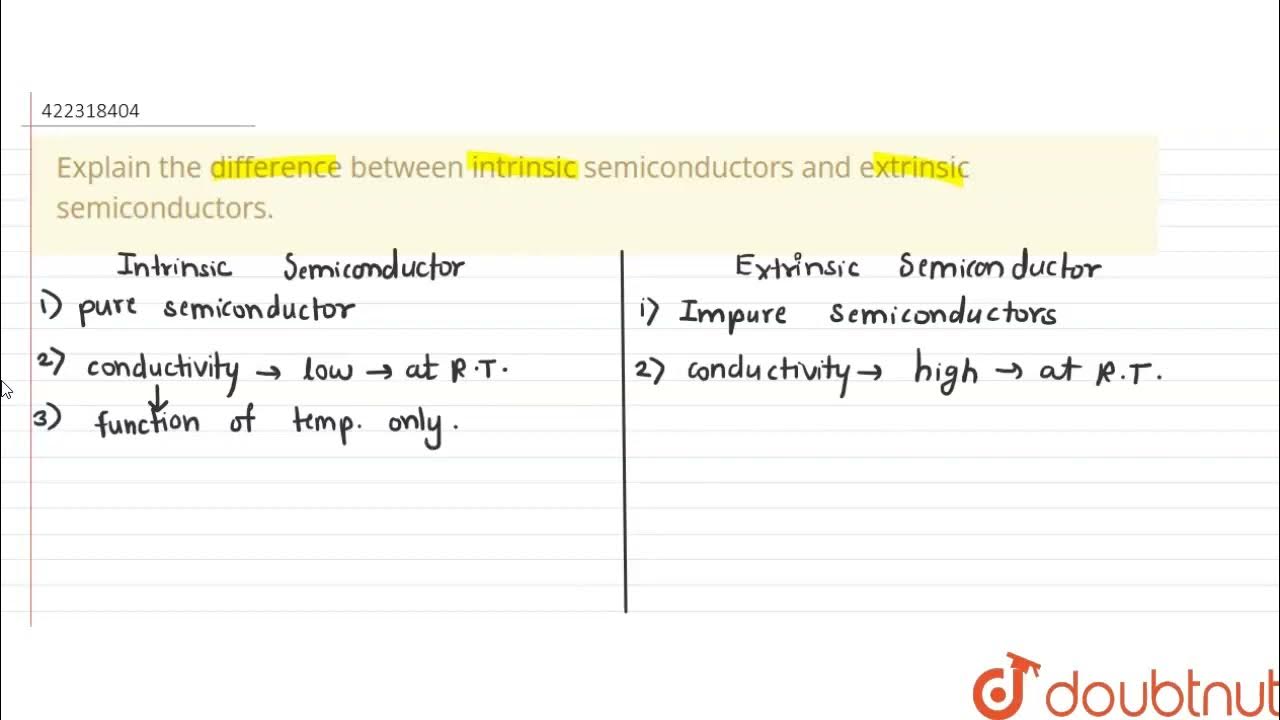 422318404
Explain the difference between intrinsic semiconductors and extrinsic
semiconductors.
Intrinsic Semiconductor
1) pure semiconductor
2) conductivity → low → at R.T.
↓
3) function of temp. only.
Extrinsic Semiconductor
1) Impure semiconductors
2) conductivity → high → at R.T.
doubtnut